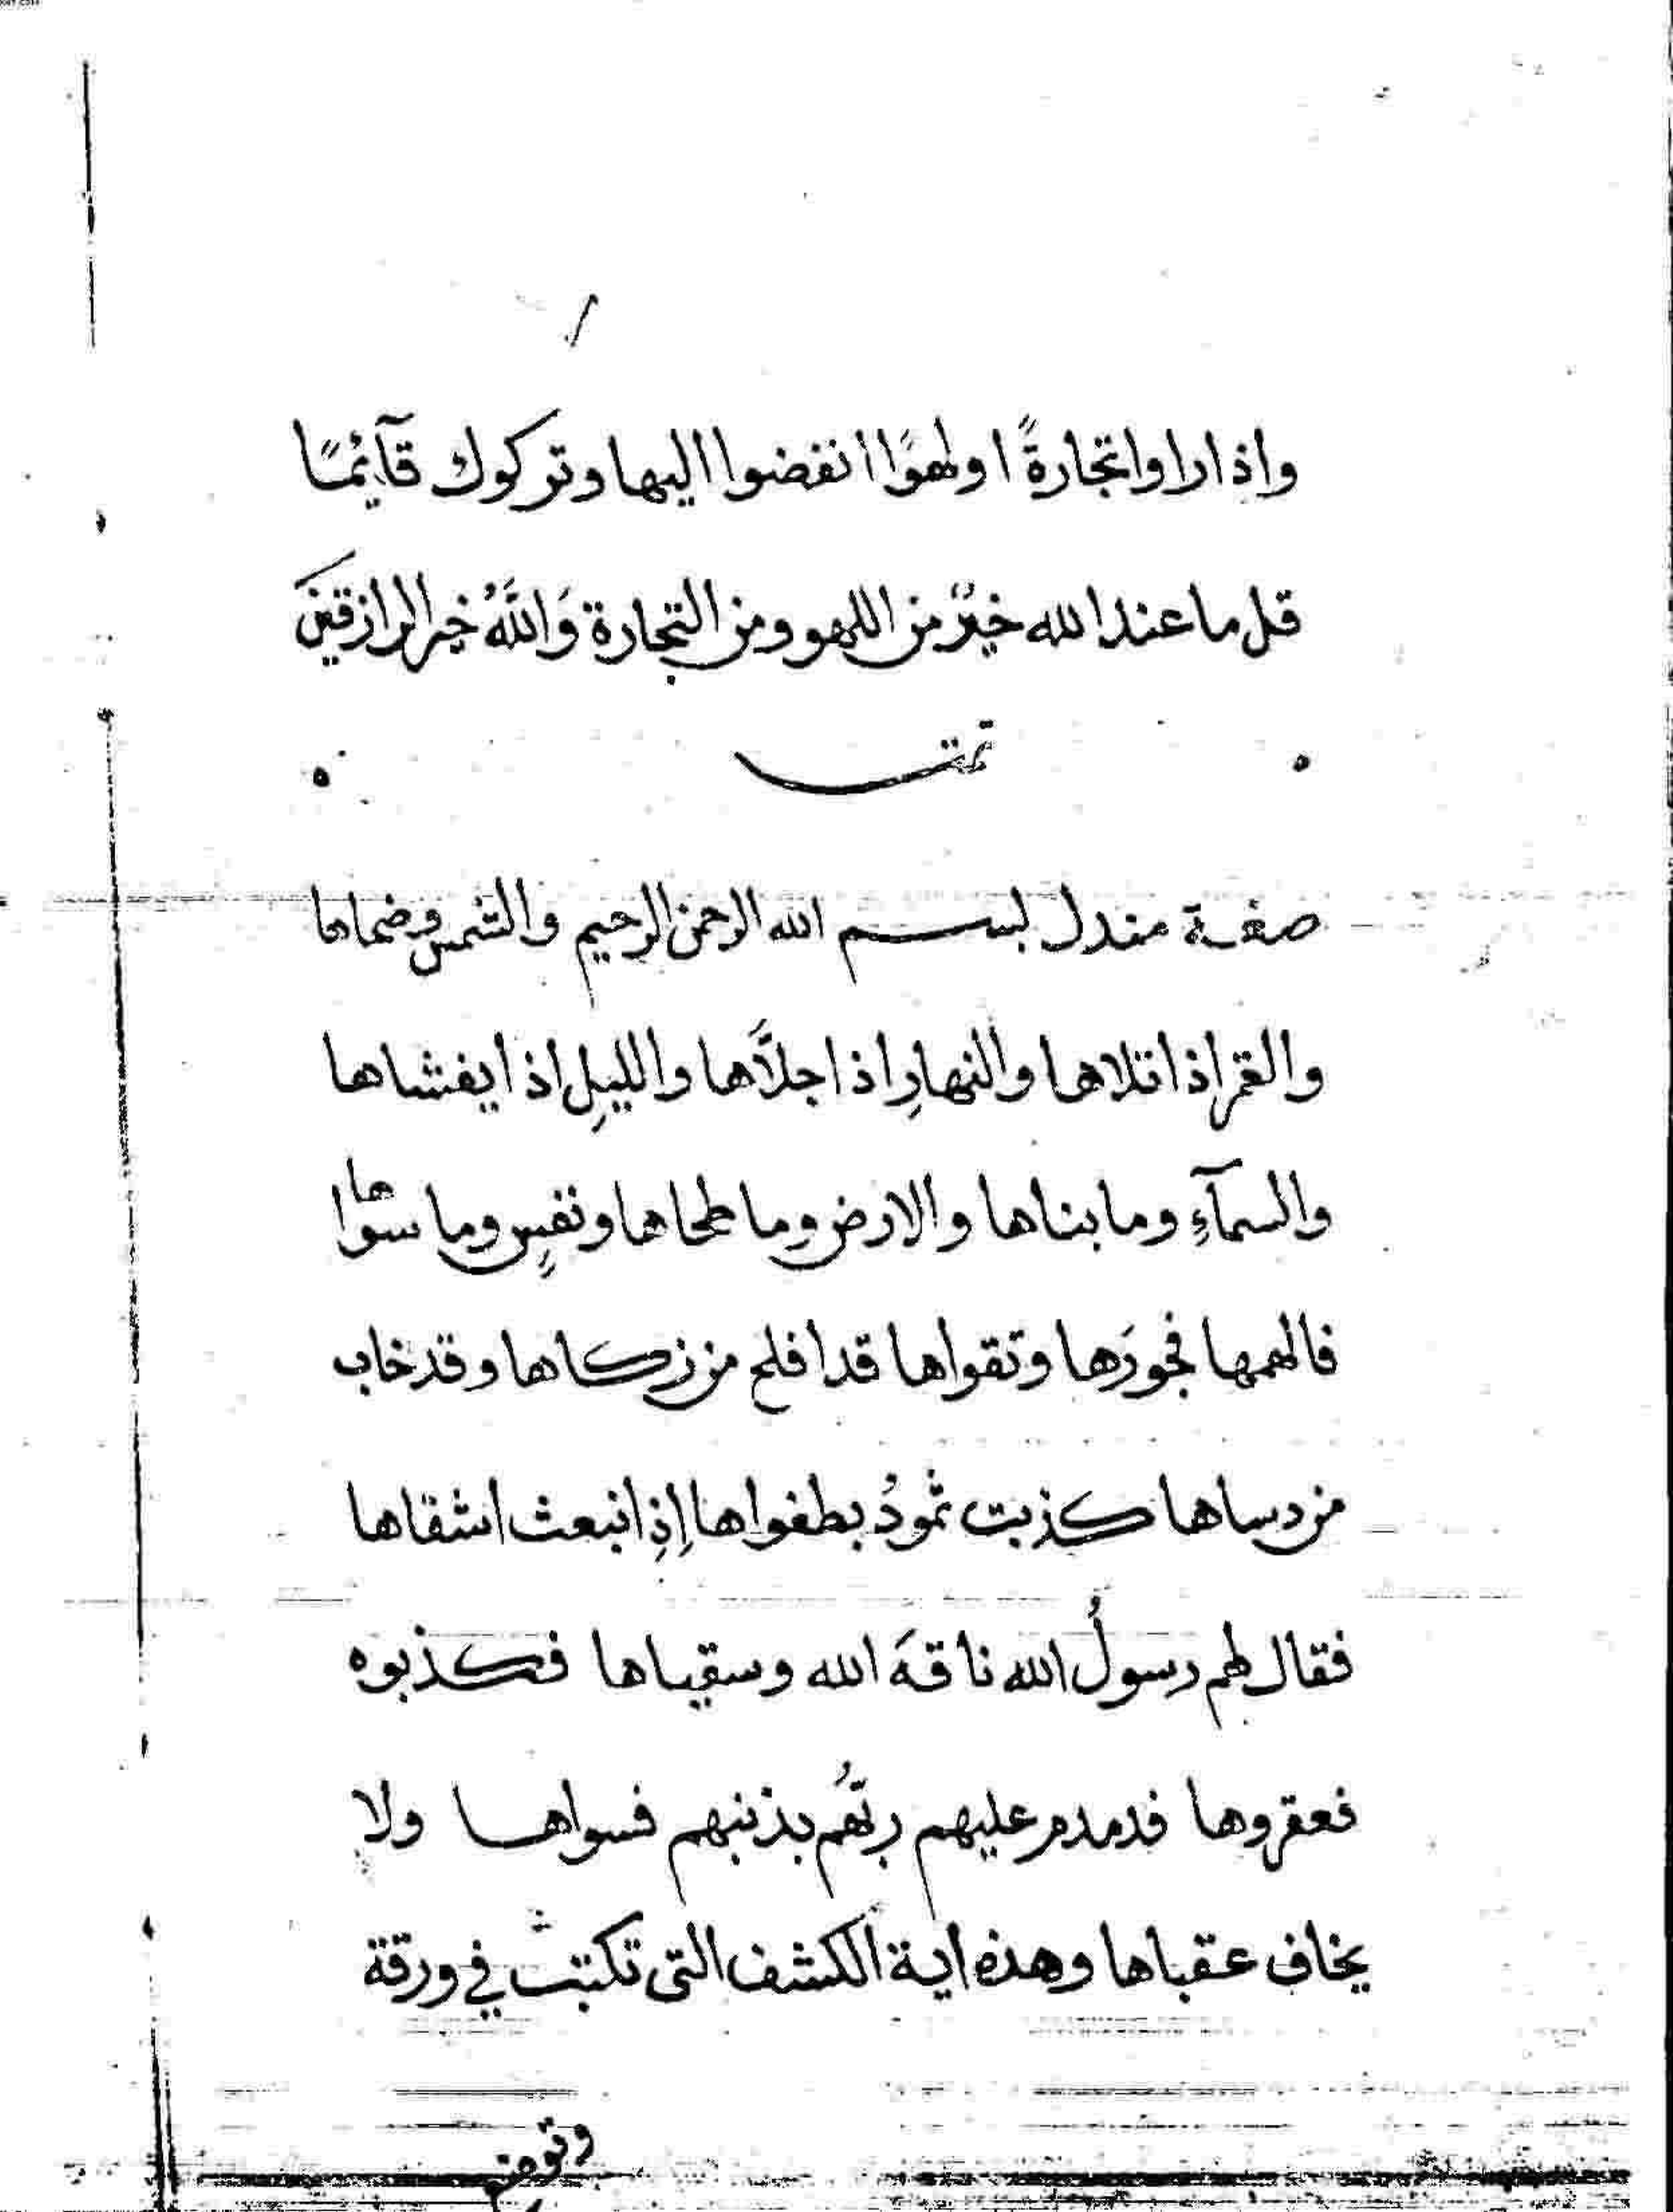 واذا راوا تجارةً او لهوًا انفضوا اليها وتركوك قآئمًا
قل ما عند الله خيرٌ من اللهو ومن التجارة وَاللَّهُ خير الرازقينَ
تمت
صفة مندل بسم الله الرحمن الرحيم والشمس وضحاها
والقمر اذا تلاها والنهارِ اذا جلَّاها والليلِ اذا يغشاها
والسمآءِ وما بناها والارض وما طحاها ونفسٍ وما سواها
فالهمها فجورَها وتقواها قد افلح من زكاها وقد خاب
من دساها كذبت ثمودُ بطغواها اِذِ انبعث اشقاها
فقال لهم رسولُ الله ناقةَ الله وسقياها فكذبوه
فعقروها فدمدم عليهم ربُّهم بذنبهم فسواها ولا
يخاف عقباها وهذه اية الكشف التى تكتب في ورقة